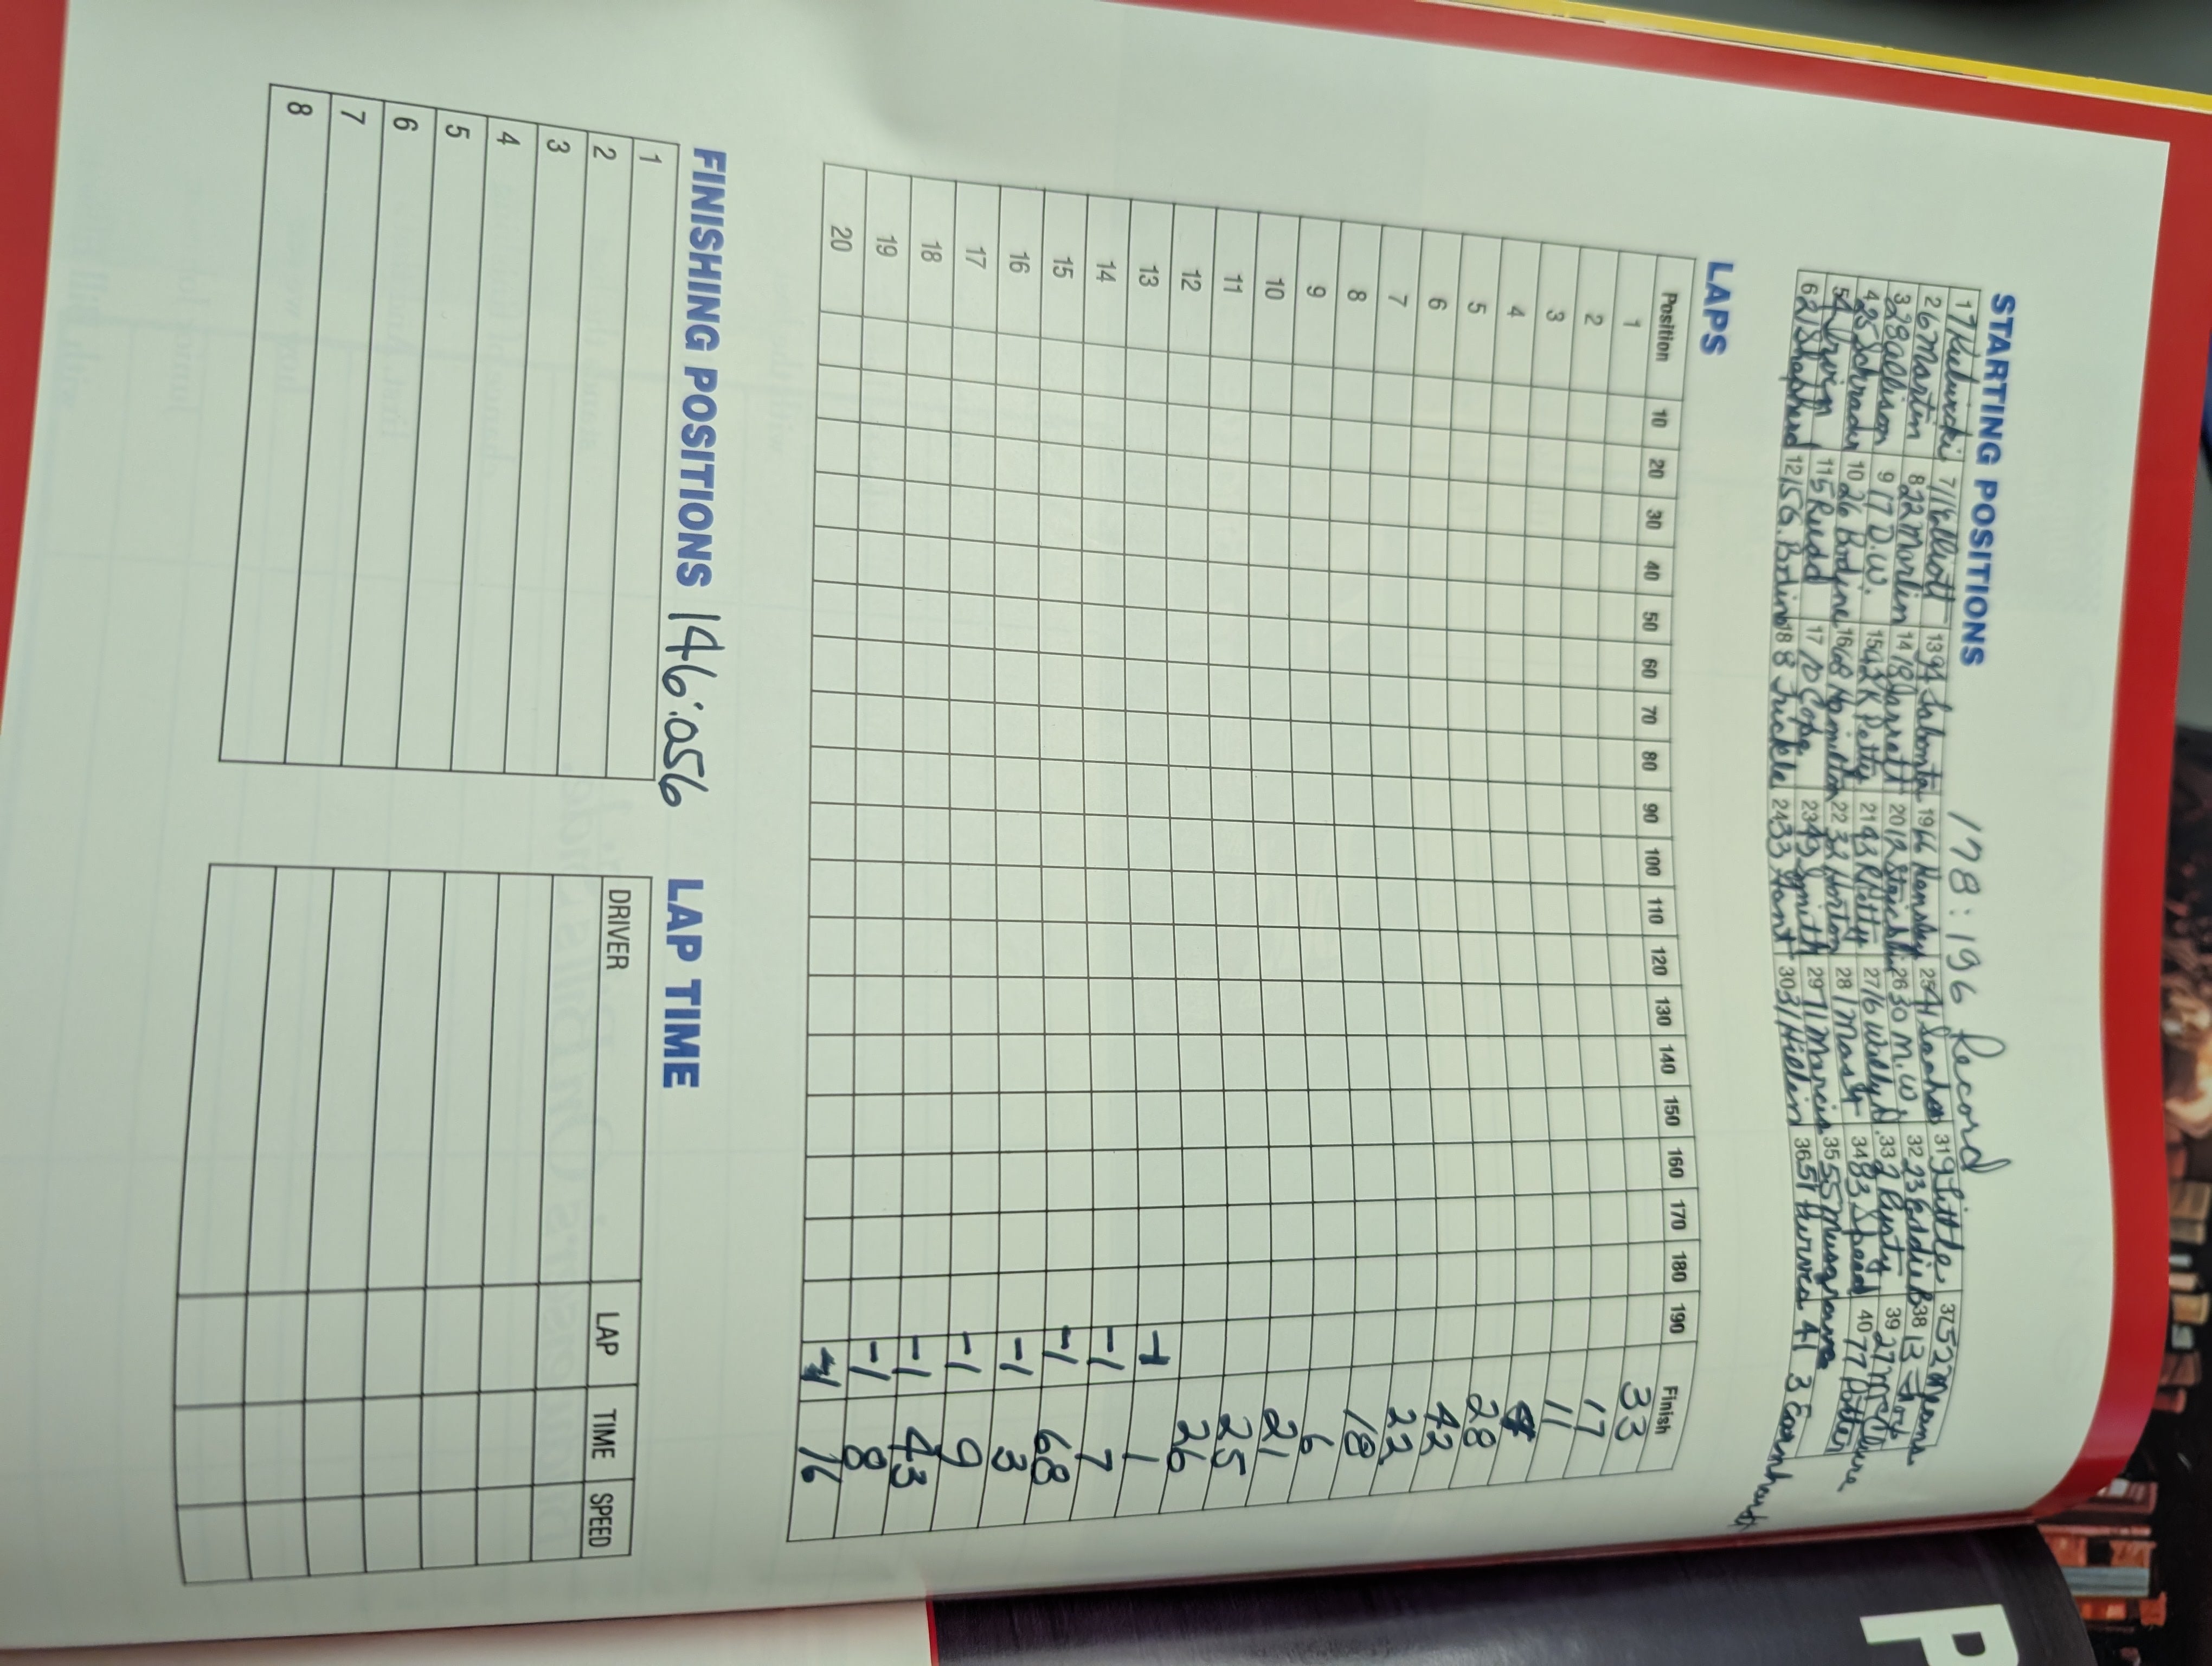 STARTING POSITIONS 178:196 Record
1 7 Kulwicki 7 11 Elliott 13 94 Labonte 19 66 Hensley 25 4 31 9 Little 37 52 Means
2 6 Martin 8 22 Marlin 14 18 Jarrett 20 12 26 30 M.W. 32 23 Eddie B 38 13
3 28 Allison 9 17 D.W. 15 42 K Petty 21 43 R Petty 27 16 Wally D. 33 2 Rusty 39 27 McClure
4 25 Schrader 10 26 Bodine 16 68 Hamilton 22 32 Horton 28 1 Mast 34 83 Speed 40 77 Potter
5 4 Irvan 11 5 Rudd 17 10 Cope 23 49 Smith 29 71 Marcis 35 55
6 21 Shepherd 12 15 G. Bodine 18 8 Trickle 24 33 Gant 30 31 Hillin 36 51 Purvis 41 3 Earnhardt
LAPS
Position 10 20 30 40 50 60 70 80 90 100 110 120 130 140 150 160 170 180 190 Finish
1 33
2 17
3 11
4 4
5 28
6 42
7 22
8 18
9 6
10 21
11 25
12 26
13 -1 1
14 -1 7
15 -1 68
16 -1 3
17 -1 9
18 -1 43
19 -1 8
20 16
FINISHING POSITIONS 146:056
1
2
3
4
5
6
7
8
LAP TIME
DRIVER LAP TIME SPEED
P